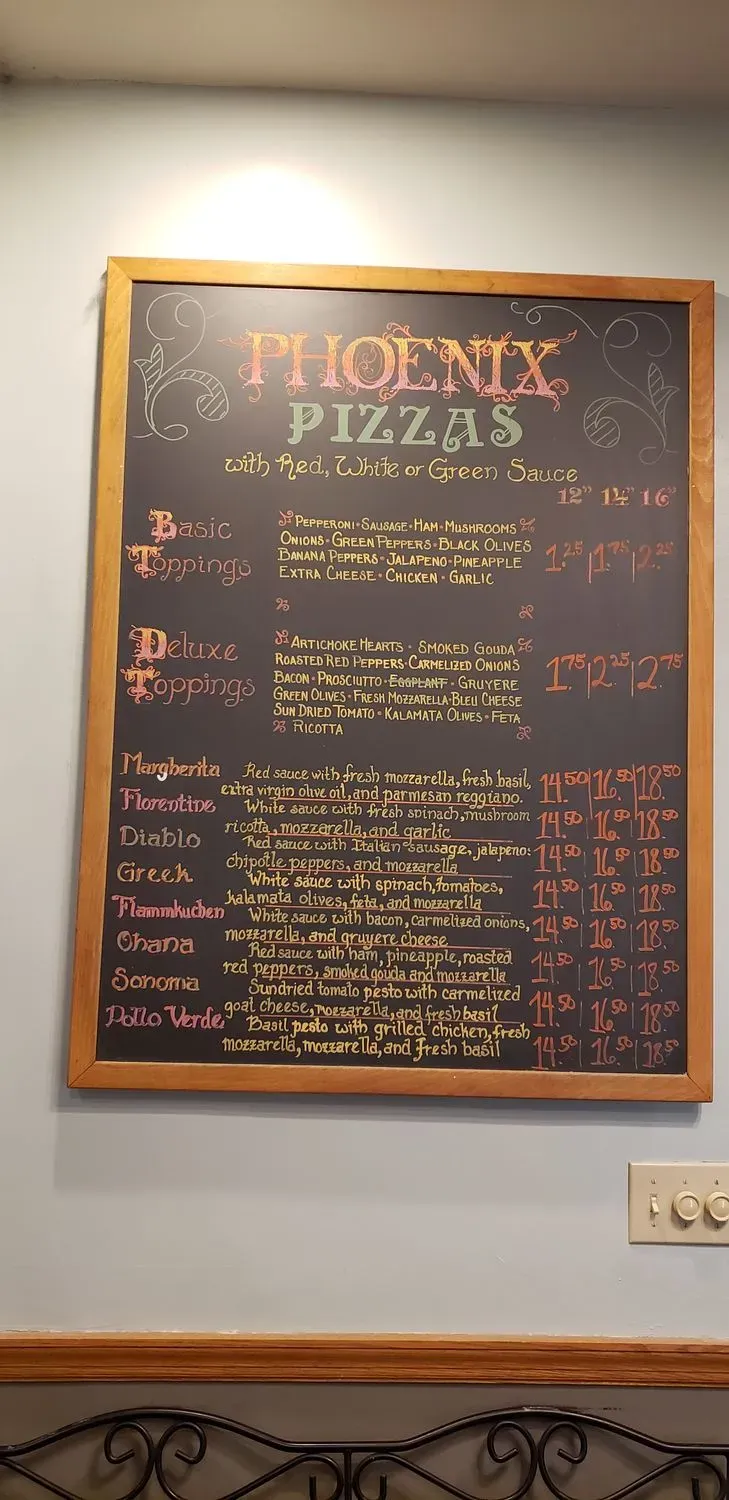 PHOENIX
PIZZAS
with Red, White or Green Sauce
12" 14" 16"
Basic Toppings
PEPPERONI • SAUSAGE • HAM • MUSHROOMS
ONIONS • GREEN PEPPERS • BLACK OLIVES
BANANA PEPPERS • JALAPENO • PINEAPPLE
EXTRA CHEESE • CHICKEN • GARLIC
1.25 | 1.75 | 2.25
Deluxe Toppings
ARTICHOKE HEARTS • SMOKED GOUDA
ROASTED RED PEPPERS • CARMELIZED ONIONS
BACON • PROSCIUTTO • EGGPLANT • GRUYERE
GREEN OLIVES • FRESH MOZZARELLA • BLEU CHEESE
SUN DRIED TOMATO • KALAMATA OLIVES • FETA
RICOTTA
1.75 | 2.25 | 2.75
Margherita
Red sauce with fresh mozzarella, fresh basil,
extra virgin olive oil, and parmesan reggiano.
14.50 | 16.50 | 18.50
Florentine
White sauce with fresh spinach, mushroom
ricotta, mozzarella, and garlic
14.50 | 16.50 | 18.50
Diablo
Red sauce with Italian sausage, jalapeno,
chipotle peppers, and mozzarella
14.50 | 16.50 | 18.50
Greek
White sauce with spinach, tomatoes,
kalamata olives, feta, and mozzarella
14.50 | 16.50 | 18.50
Flammkuchen
White sauce with bacon, carmelized onions,
mozzarella, and gruyere cheese
14.50 | 16.50 | 18.50
Ohana
Red sauce with ham, pineapple, roasted
red peppers, smoked gouda and mozzarella
14.50 | 16.50 | 18.50
Sonoma
Sundried tomato pesto with carmelized
goat cheese, mozzarella, and fresh basil
14.50 | 16.50 | 18.50
Pollo Verde
Basil pesto with grilled chicken, fresh
mozzarella, mozzarella, and fresh basil
14.50 | 16.50 | 18.50